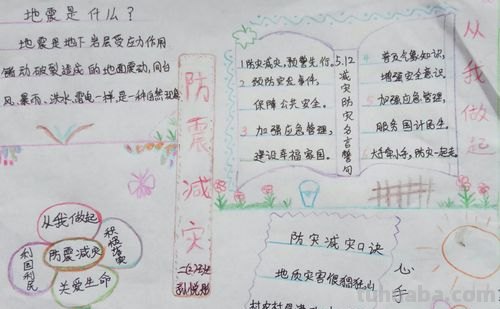 地震是什么?
地震是地下岩层受应力作用
错动破裂造成的地面震动,同台
风、暴雨、洪水、雷电一样,是一种自然现象
防震减灾
从我做起
积极落实
利国利民
防震减灾
关爱生命
1 防灾减灾,预警先行。
2 预防灾害事件,
保障公共安全。
3 加强应急管理,
建设幸福家园。
5.12
减灾防灾名言警句
4 普及气象知识,
增强安全意识
5 加强应急管理,
服务国计民生。
6 大手牵小手,防灾一起走。
从我做起
防灾减灾口诀
地质灾害很猖狂
心
手
tuhaaba.com